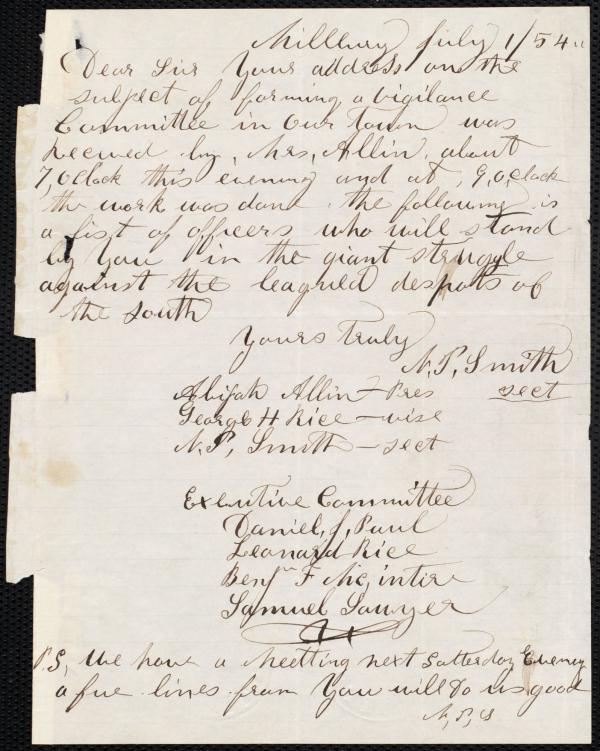 Millbury July 1/54
Dear Sir Your address on the
subject of forming a vigilance
Committee in Our Town was
receved by, Mrs, Allin, about
7, oclock this evening and at, 9, o,clock
the work was done the following is
a list of officers who will stand
by you in the giant struggle
against the leagued despots of
the South
Yours Truly
N. P, Smith
sect
Abijah Allin - Pres
George H Rice - vise
N. P, Smith - sect
Executive Committee
Daniel, J, Paul
Leonard Rice
Benjn F Mcintire
Samuel Sawyer
P.S, We have a Meetting next Satterday Evening
a fue lines from You will do us good
N, P, S